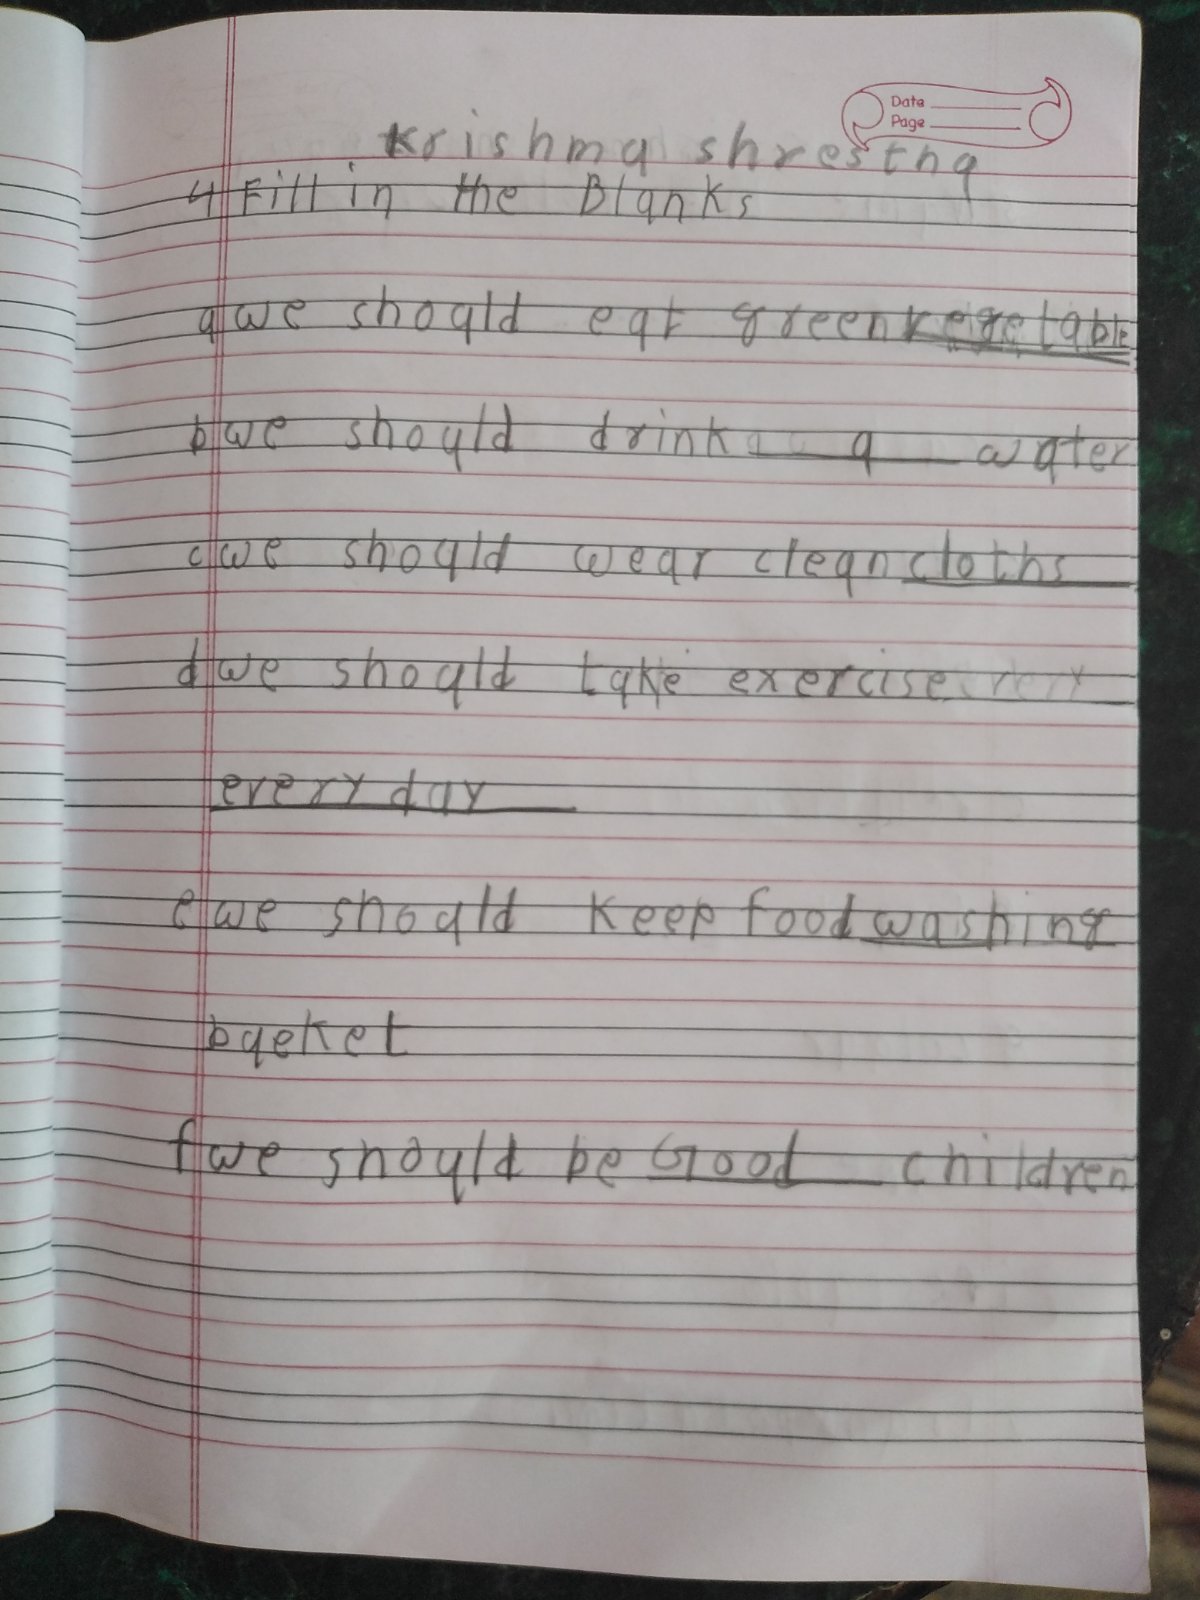 Date
Page
Krishma shrestha
4 Fill in the Blanks
a we should eat green vegetable
b we should drink a water
c we should wear clean cloths
d we should take exercise
every day
e we should keep food washing
baeket
f we should be Good children